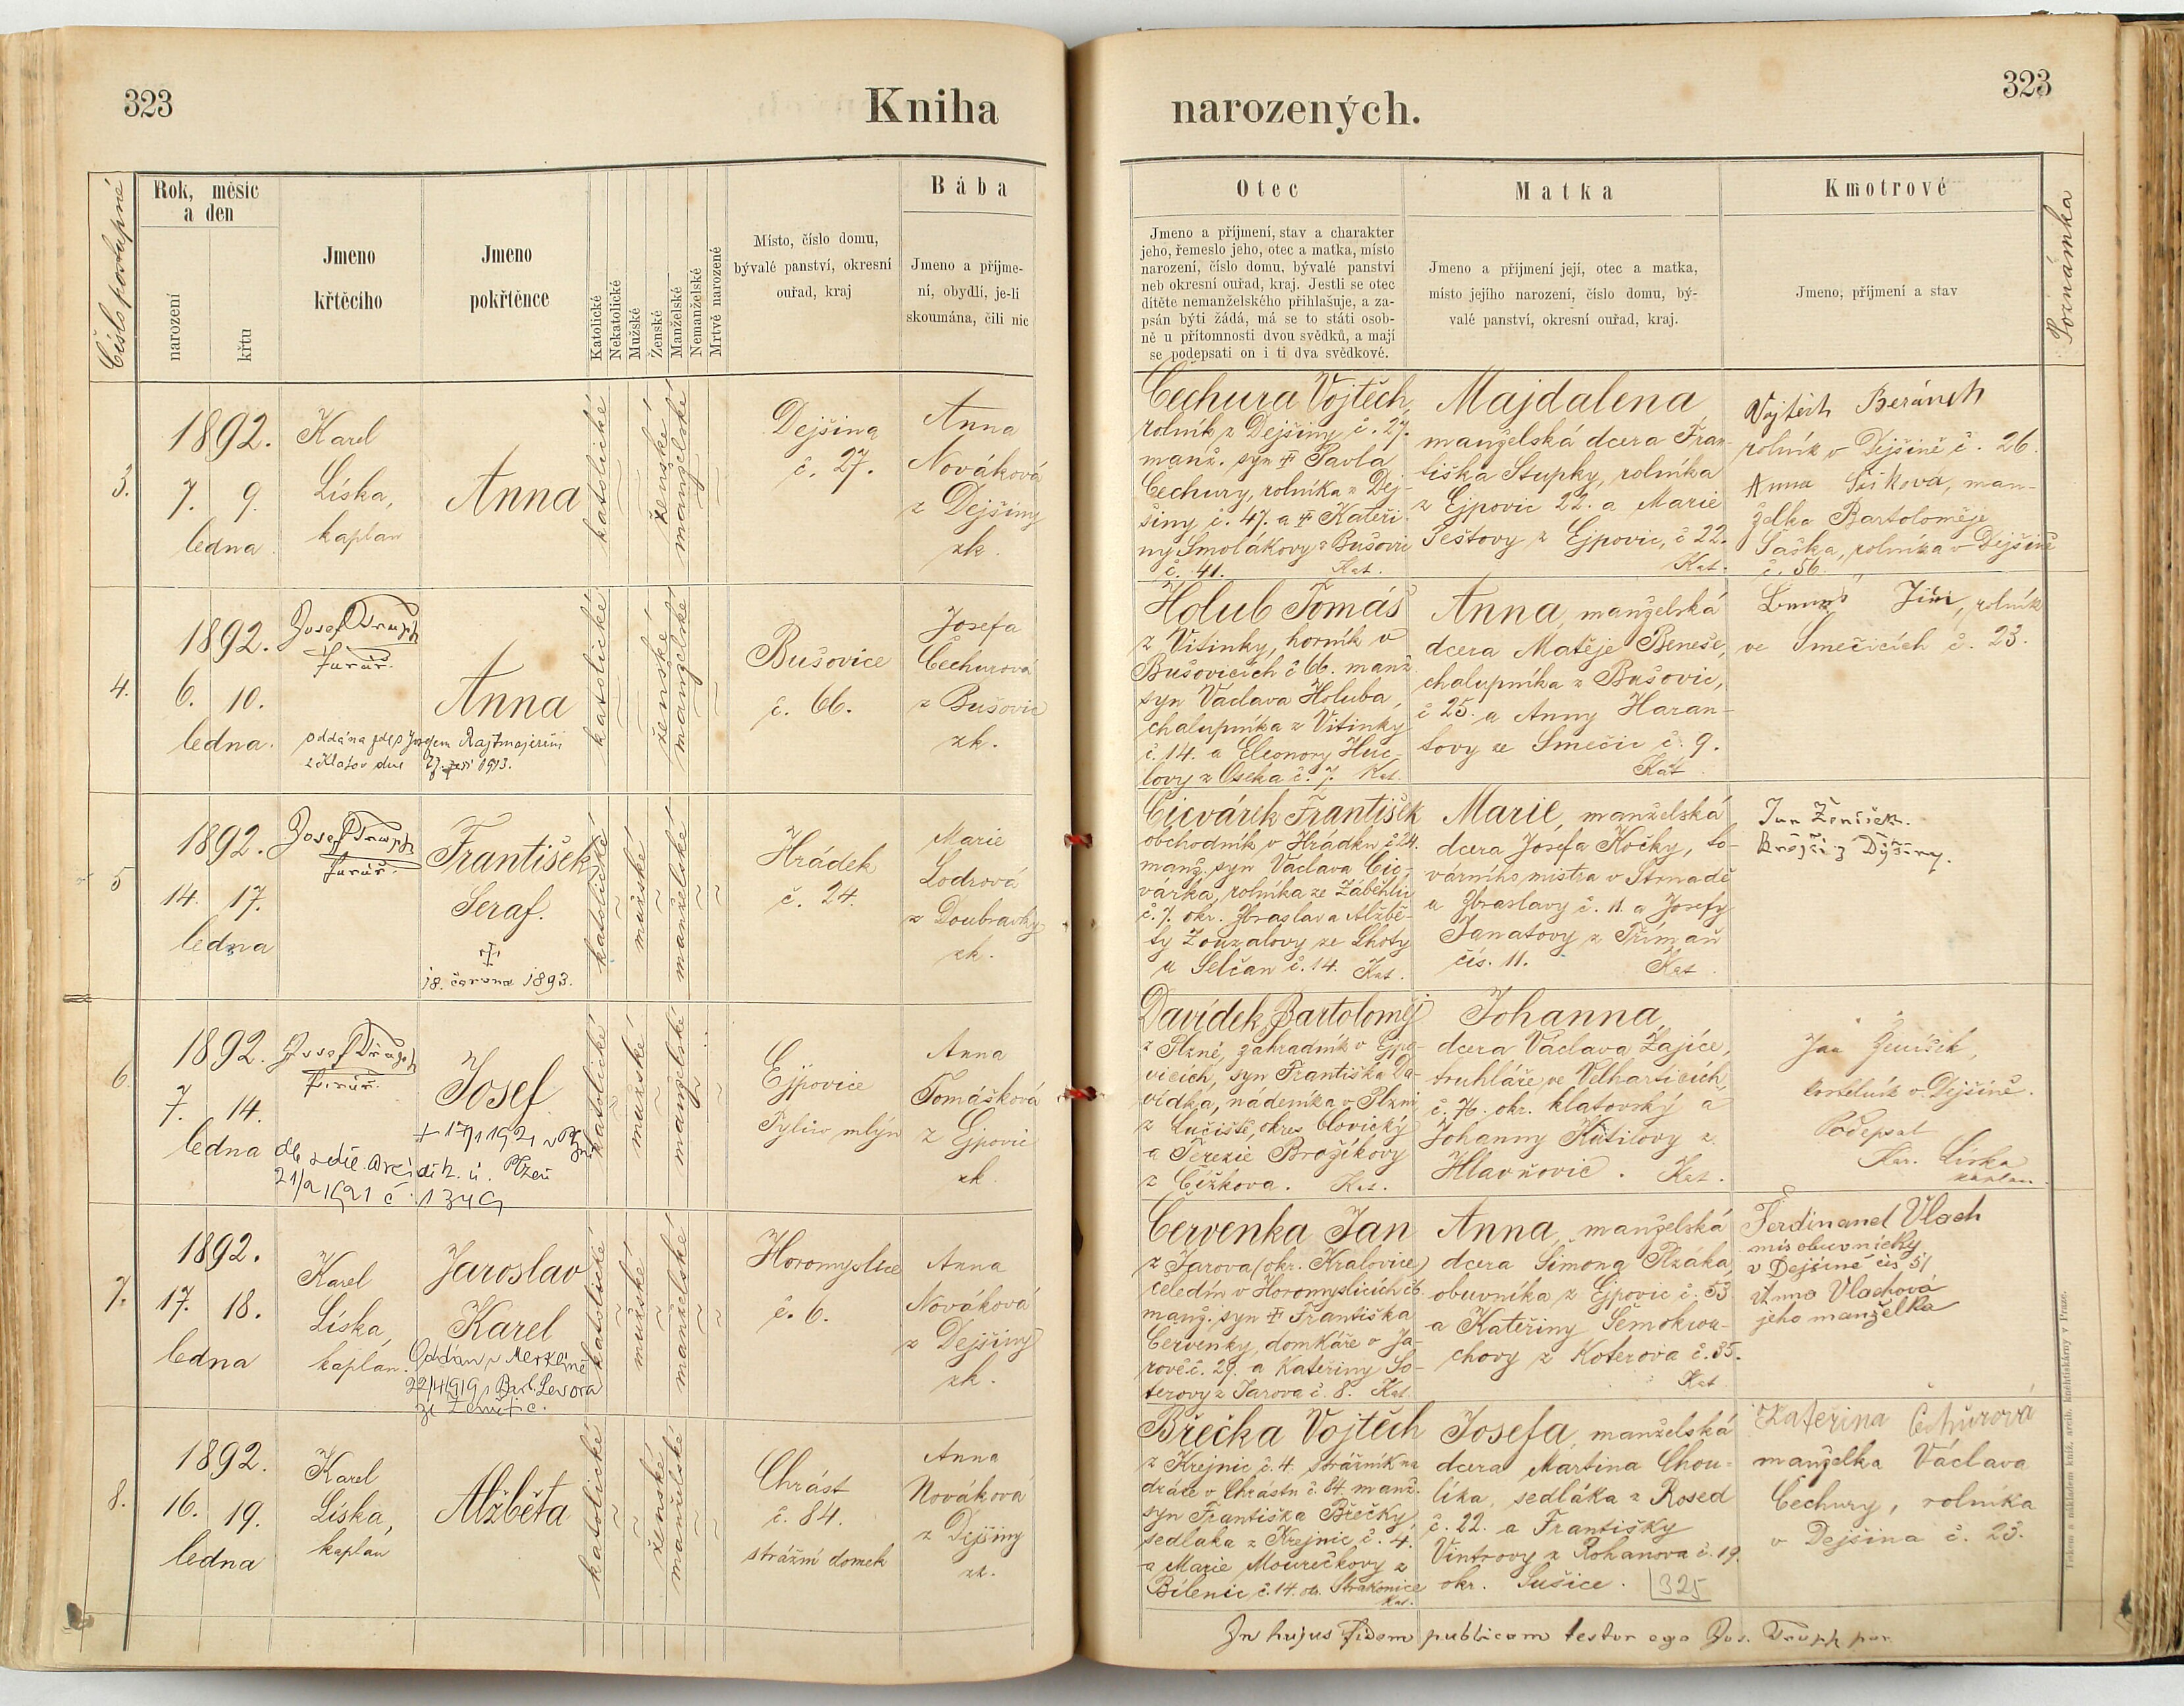 323
Kniha
narozených.
323
Číslo postupné
Rok, měsíc
a den
narození
křtu
Jmeno
křtěcího
Jmeno
pokřtěnce
Katolické
Nekatolické
Mužské
Ženské
Manželské
Nemanželské
Mrtvě narozené
Místo, číslo domu,
bývalé panství, okresní
ouřad, kraj
Bába
Jmeno a přijme-
ní, obydlí, je-li
skoumána, čili nic
Otec
Jmeno a příjmení, stav a charakter
jeho, řemeslo jeho, otec a matka, místo
narození, číslo domu, bývalé panství
neb okresní ouřad, kraj. Jestli se otec
dítěte nemanželského přihlašuje, a za-
psán býti žádá, má se to státi osob-
ně u přítomnosti dvou svědků, a mají
se podepsati on i ti dva svědkové.
Matka
Jmeno a přijmení její, otec a matka,
místo jejího narození, číslo domu, bý-
valé panství, okresní ouřad, kraj.
Kmotrové
Jmeno, příjmení a stav
Poznámka
3.
1892.
7. 9.
ledna
Karel
Líska,
kaplan
Anna
katolické
ženské
manželské
Dejšina
č. 27.
Anna
Nováková
z Dejšiny
zk.
Čechura Vojtěch,
rolník z Dejšiny č. 27.
manž. syn † Pavla
Čechury, rolníka z Dej-
šiny č. 47. a † Kateři-
ny Smolákovy z Bušovic
č. 41. Kat.
Majdalena
manželská dcera Fran-
tiška Stupky, rolníka
z Ejpovic 22. a Marie
Peštovy z Ejpovic, č 22.
Kat.
Vojtěch Beránek
rolník v Dejšině č. 26.
Anna Šašková, man-
želka Bartoloměje
Šaška, rolníka v Dejšině
č. 56.
4.
1892.
6. 10.
ledna.
Josef Trapp
farář.
Anna
oddána zde s Josefem Rajtmajerem
z Klatov dne 27. září 1913.
katolické
ženské
manželské
Bušovice
č. 66.
Josefa
Čechurová
z Bušovic
zk.
Holub Tomáš
z Vitinky, horník v
Bušovicích č 66. manž.
syn Václava Holuba,
chalupníka z Vitinky
č. 14. a Eleonory Huc-
lovy z Oseka č. 7. Kat.
Anna, manželská
dcera Matěje Beneše,
chalupníka z Bušovic,
č 25. a Anny Haran-
tovy ze Smečic č. 9.
Kat
Jiří, rolník
ve Smečicích č. 23.
5
1892.
14. 17.
ledna
Josef Trapp
farář.
František
Seraf.
†
18. června 1893.
katolické
mužské
manželské
Hrádek
č. 24.
Marie
Lodrová
z Doubravky
zk.
Cicvárek František
obchodník v Hrádku č 24.
manž. syn Václava Cic-
várka, rolníka ze Záběhlic
č. 7. okr. Zbraslav a Alžbě-
ty Zouzalovy ze Lhoty
u Selčan č. 14. Kat.
Marie, manželská
dcera Josefa Kočky, to-
várního mistra v Strnadě
u Zbraslavy č. 11. a Josefy
Janatovy z Říman
čís. 11. Kat.
Jan Ženíšek.
krejčí z Dýšiny.
6.
1892.
7. 14.
ledna
Josef Trapp
farář.
Josef
† 17/1 1921 v Plzni
21/2 1921 č. 1349
katolické
mužské
manželské
Ejpovice
Pytlův mlýn
Anna
Tomášková
z Ejpovic
zk.
Davídek Bartoloměj
z Plzně, zahradník v Ejpo-
vicích, syn Františka Da-
vídka, nádeníka v Plzni
z Lučiště, okres Blovický
a Terezie Brožíkovy
z Čížkova. Kat.
Johanna,
dcera Václava Zajíce,
truhláře ve Velharticích,
č. 76. okr. klatovský a
Johanny Kutilovy z
Hlavňovic. Kat.
Jan Ženíšek,
kostelník v Dejšině.
Podepsal
Kar. Líska
kaplan.
7.
1892.
17. 18.
ledna
Karel
Líska,
kaplan.
Jaroslav
Karel
Oddán v Merklíně
22/4 1919 s Barb. Levora
ze Ženětic.
katolické
mužské
manželské
Horomyslice
č. 6.
Anna
Nováková
z Dejšiny
zk.
Červenka Jan
z Jarova (okr. Kralovice)
čeledín v Horomyslicích č6
manž. syn † Františka
Červenky, domkáře v Ja-
rově č. 29. a Kateřiny So-
terovy z Jarova č. 8. Kat.
Anna, manželská
dcera Šimona Plzáka,
obuvníka z Ejpovic č. 53
a Kateřiny Šemokva-
chovy z Koterova č. 35.
Kat
Ferdinand Vlach
mis obuvnický
v Dejšině čís 51
Anna Vlachová
jeho manželka
8.
1892.
16. 19.
ledna
Karel
Líska,
kaplan
Alžběta
katolické
ženské
manželské
Chrást
č. 84.
strážní domek
Anna
Nováková
z Dejšiny
zk.
Břečka Vojtěch
z Krejnic č. 4. strážník na
dráze v Chrástu č. 84. manž.
syn Františka Břečky,
sedlaka z Krejnic č. 4.
a Marie Mourečkovy z
Bílenic č. 14. ok. Strakonice
Kat.
Josefa, manželská
dcera Martina Chou-
líka, sedláka z Rosed
č. 22. a Františky
Vintrovy z Rohanova č. 19.
okr. Sušice. 325
Kateřina Čechurová
manželka Václava
Čechury, rolníka
v Dejšina č. 23.
In hujus fidem publicam testor ego Jos. Trapp par.
Tiskem a nákladem kníž. arcib. knihtiskárny v Praze.